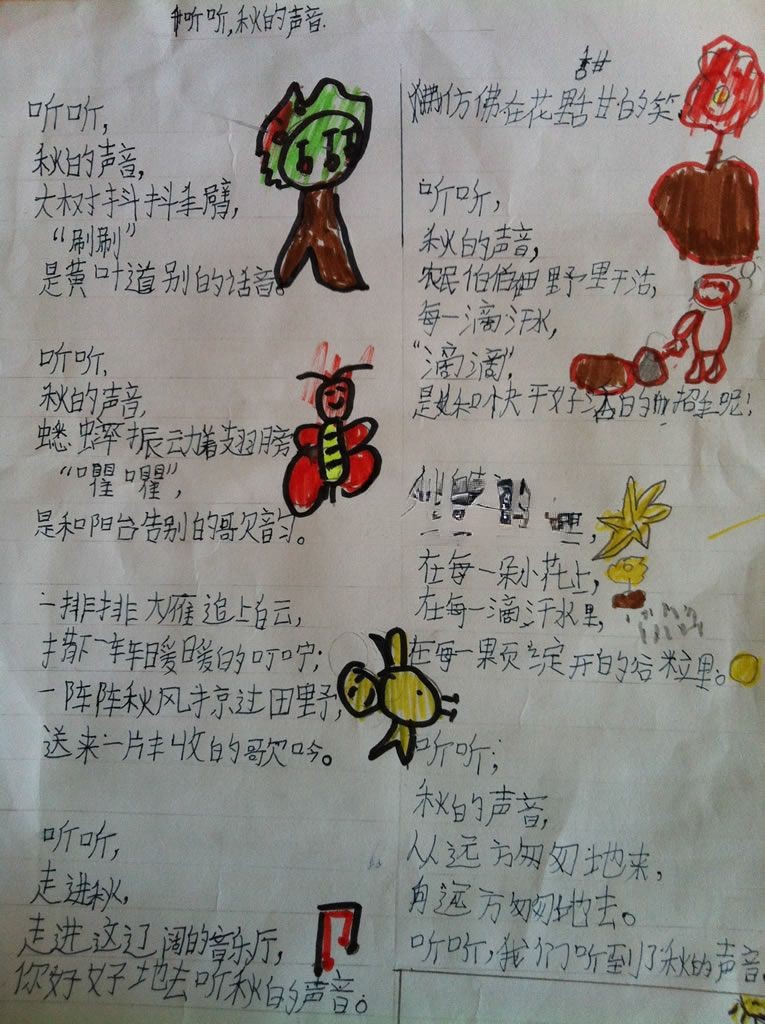 听听,秋的声音.
听听,
秋的声音,
大树抖抖手臂,
“刷刷”
是黄叶道别的话音。
听听,
秋的声音,
蟋蟀振动着翅膀
“㘗㘗”,
是和阳台告别的歌韵。
一排排大雁追上白云,
撒下一阵阵暖暖的叮咛;
一阵阵秋风掠过田野,
送来一片丰收的歌吟。
听听,
走进秋,
走进这辽阔的音乐厅,
你好好地去听秋的声音。
甜
仿佛在花 甜的笑
听听,
秋的声音,
农民伯伯田野里干活,
每一滴汗水,
“滴滴”,
是 和 快 好 的 招 呢!
在每一朵小花上,
在每一滴汗水里,
在每一颗绽开的谷粒里。
听听,
秋的声音,
从远方匆匆地来,
向远方匆匆地去。
听听,我们听到了秋的声音